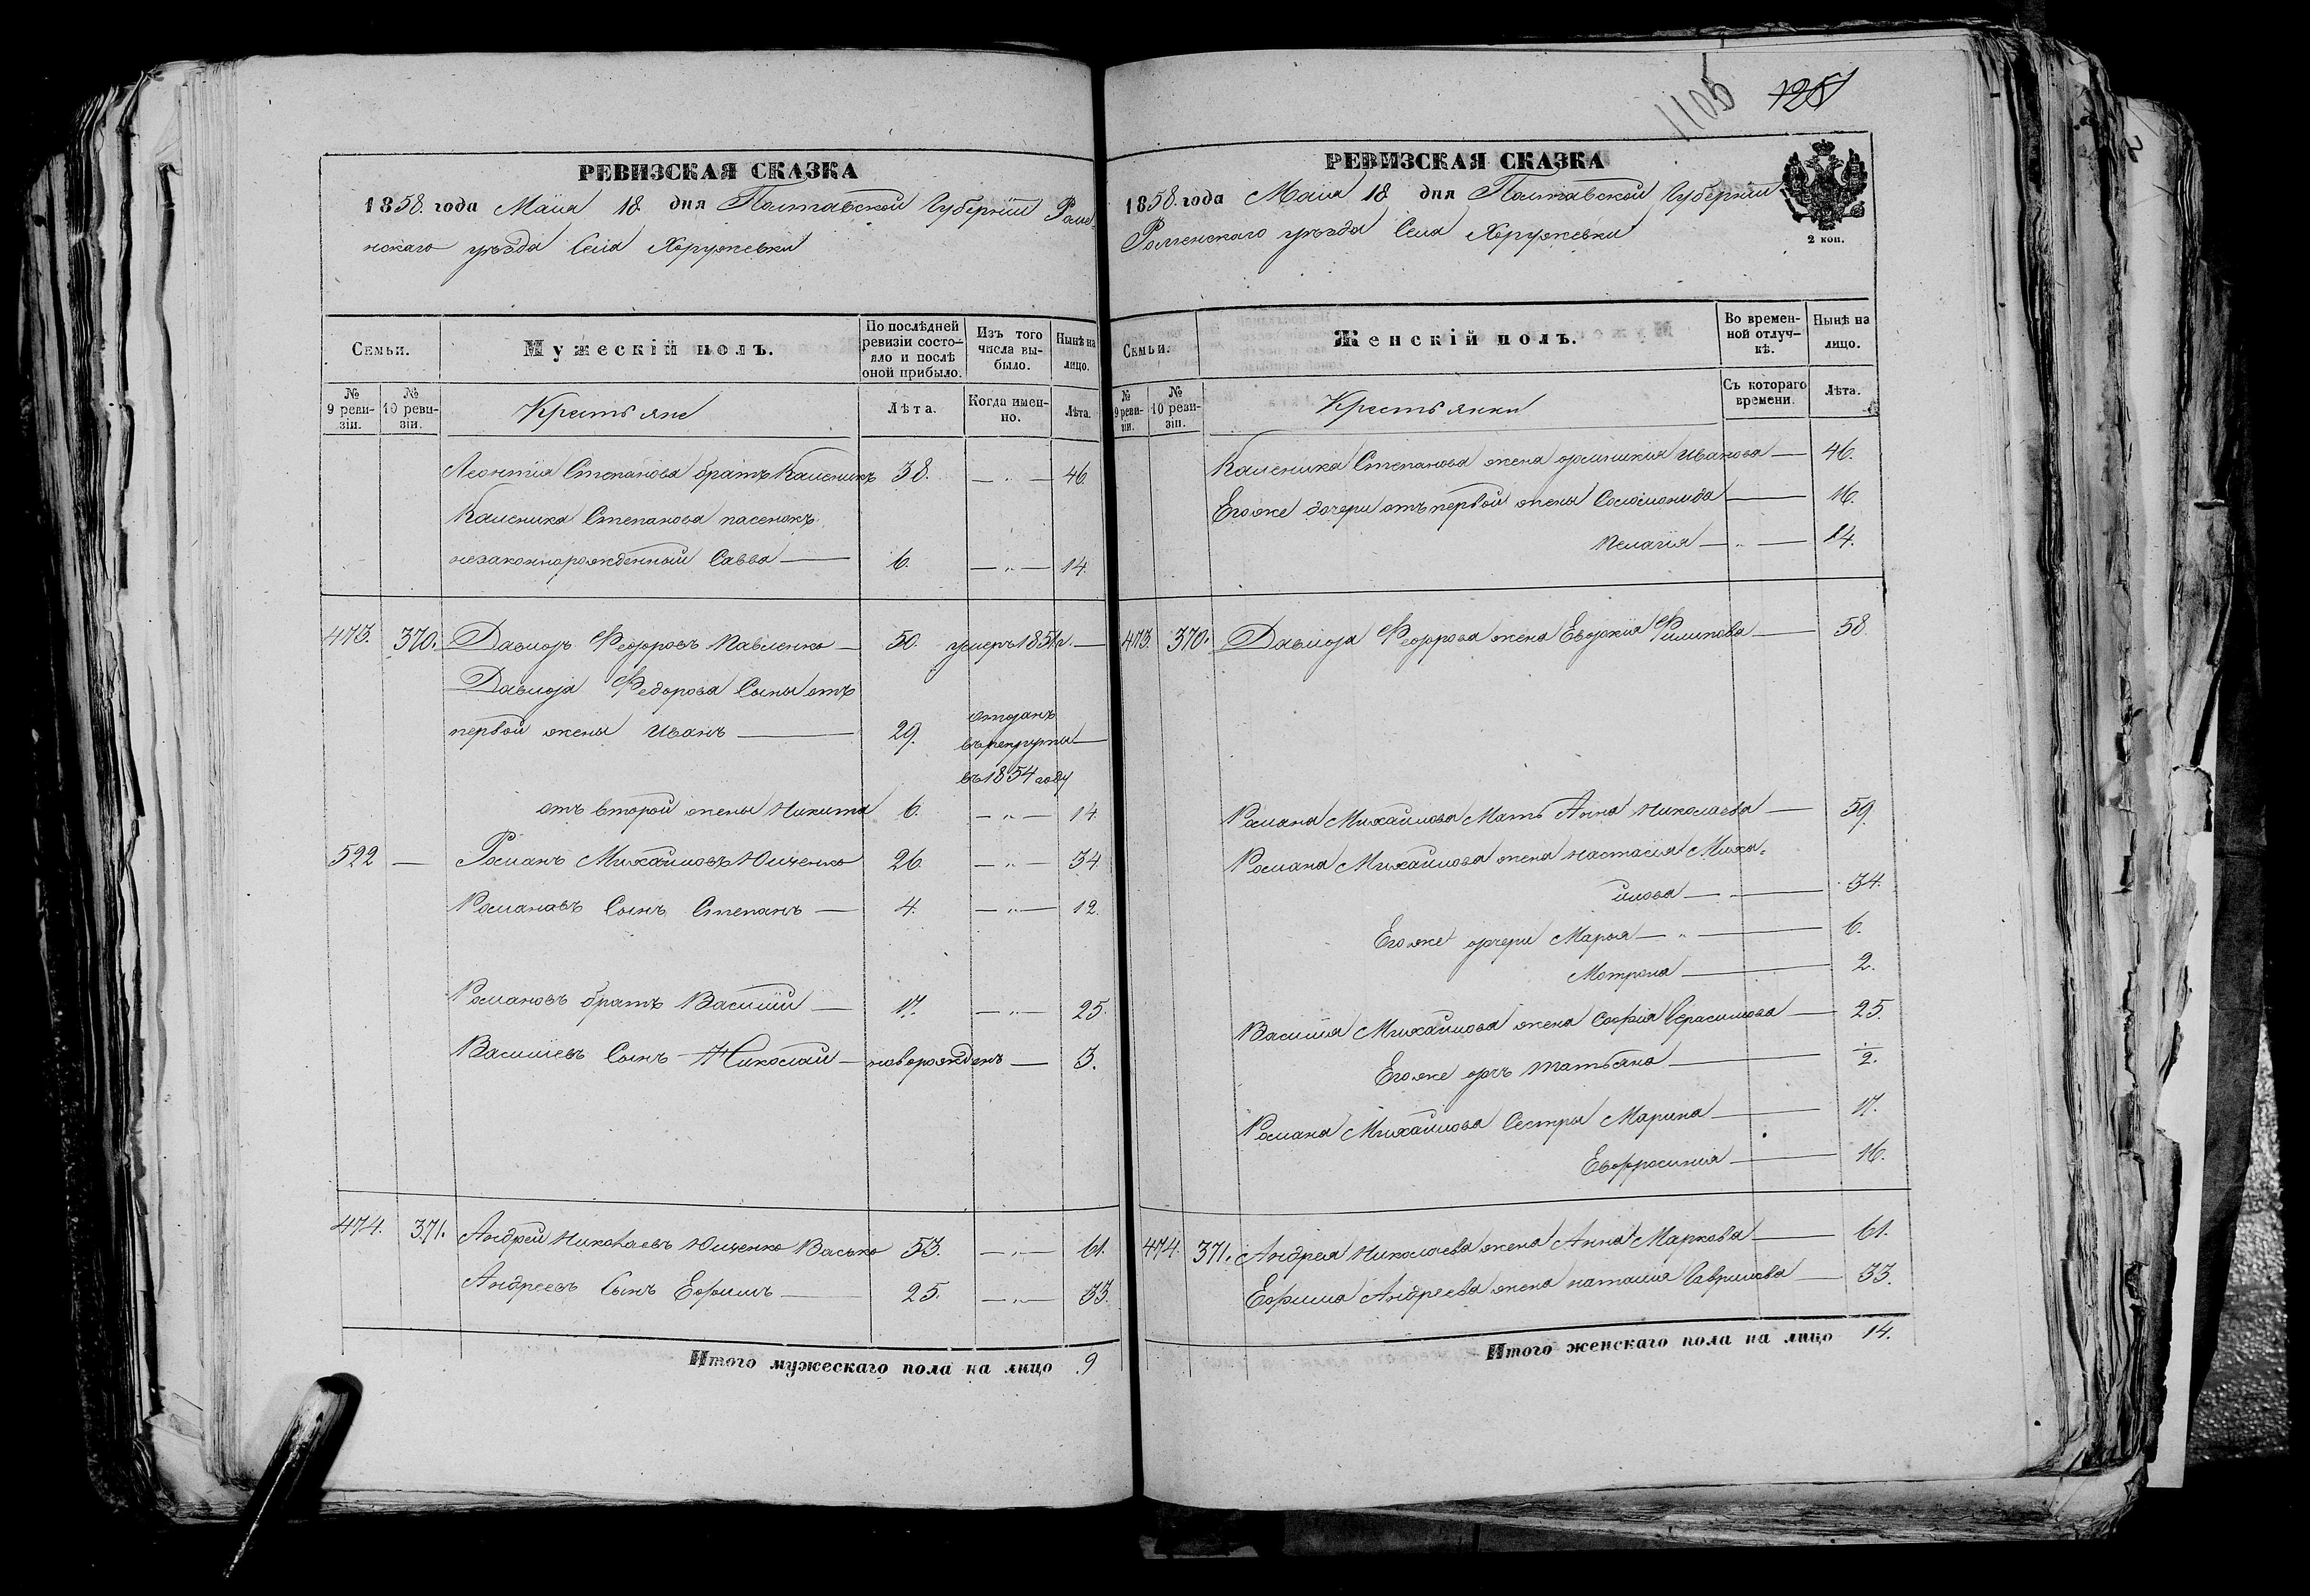 РЕВИЗСКАЯ СКАЗКА
1858. года Маія 18. дня Полтавской Губерніи Роме-
нскаго уѣзда Села Хоружевки
Семьи.
Мужескій полъ.
По послѣдней ревизіи состо-яло и послѣ оной прибыло.
Изъ того числа вы-было.
Нынѣ на лицо.
№ 9 реви-зіи.
№ 10 реви-зіи.
Крестьяне
Лѣта.
Когда имен-но.
Лѣта.
Леонтія Степанова братъ Каленикъ 38. — „ — 46
Каленика Степанова пасенокъ
незаконнорожденный Савва — 6. — „ — 14.
473. 370. Давыдъ Федоровъ Павленко — 50. умеръ 1851 г. —
Давыда Федорова Сыны отъ
первой жены Иванъ — 29. отданъ
въ рекруты —
въ 1854 году
отъ второй жены Никита 6. — „ — 14
522 — Романъ Михайловъ Ющенко 26 — „ — 34
Романовъ Сынъ Степанъ — 4. — „ — 12.
Романовъ братъ Василій — 17. — „ — 25.
Васильевъ Сынъ Николай — новорожденъ — 3.
474. 371. Андрей Николаевъ Ющенко Васько 53. — „ — 61.
Андреевъ Сынъ Ефимъ — 25. — „ — 33.
Итого мужескаго пола на лицо 9
1105 125
РЕВИЗСКАЯ СКАЗКА
1858. года Маія 18 дня Полтавской Губерніи
Роменскаго уѣзда Села Хоружевки
2 коп.
Семьи.
Женскій полъ.
Во времен-ной отлуч-кѣ.
Нынѣ на лицо.
№ 9 реви-зіи.
№ 10 реви-зіи.
Крестьянки
Съ котораго времени.
Лѣта.
Каленика Степанова жена Иванова — 46.
Егоже дочери отъ первой жены Соломонида — 16.
Пелагія — „ — 14.
473. 370. Давыда Федорова жена Евдокія Филипова — 58.
Романа Михайлова Мать Анна Николаева — 59.
Романа Михайлова жена Настасія Миха-
йлова — 34.
Егоже дочери Марья — „ — 6.
Мотрона — 2.
Василія Михайлова жена Софія Герасимова — 25.
Егоже дочь Татьяна — 1/2.
Романа Михайлова Сестры Марина — 17.
Евфросинія — 16.
474. 371. Андрея Николаева жена Анна Маркова — 61.
Ефима Андреева жена Наталія Гаврилова — 33.
Итого женскаго пола на лицо 14.